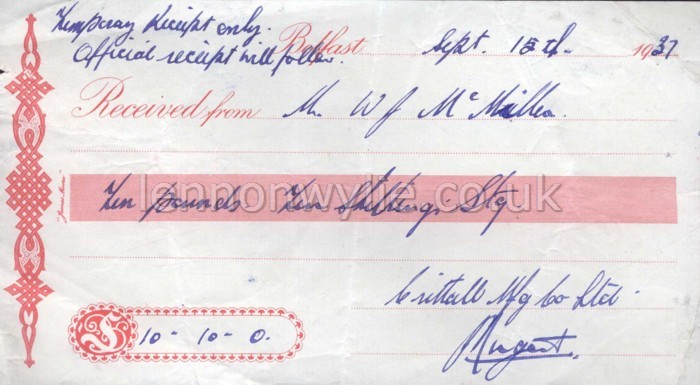 Temporary Receipt only.
Official receipt will follow.
Belfast Sept. 18th. 1937
Received from Mr. W J McMillen.
Ten pounds Ten Shillings Stg.
lennonwylie.co.uk
£ 10-10-0.
Crittall Mfg Co Ltd.
Nugent.